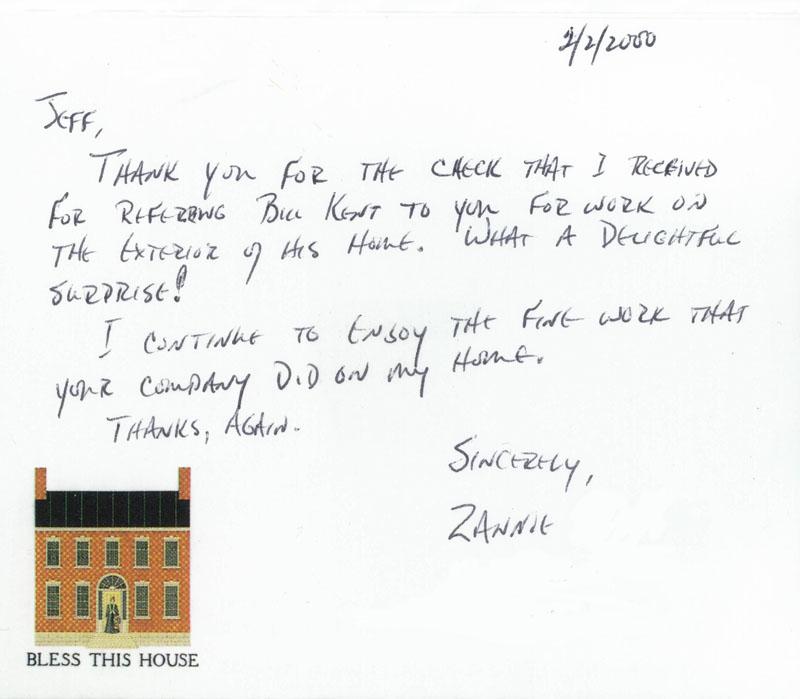 2/2/2000
JEFF,
THANK YOU FOR THE CHECK THAT I RECEIVED
FOR REFERRING BILL KENT TO YOU FOR WORK ON
THE EXTERIOR OF HIS HOME. WHAT A DELIGHTFUL
SURPRISE!
I CONTINUE TO ENJOY THE FINE WORK THAT
YOUR COMPANY DID ON MY HOME.
THANKS, AGAIN.
SINCERELY,
ZANNIE
BLESS THIS HOUSE